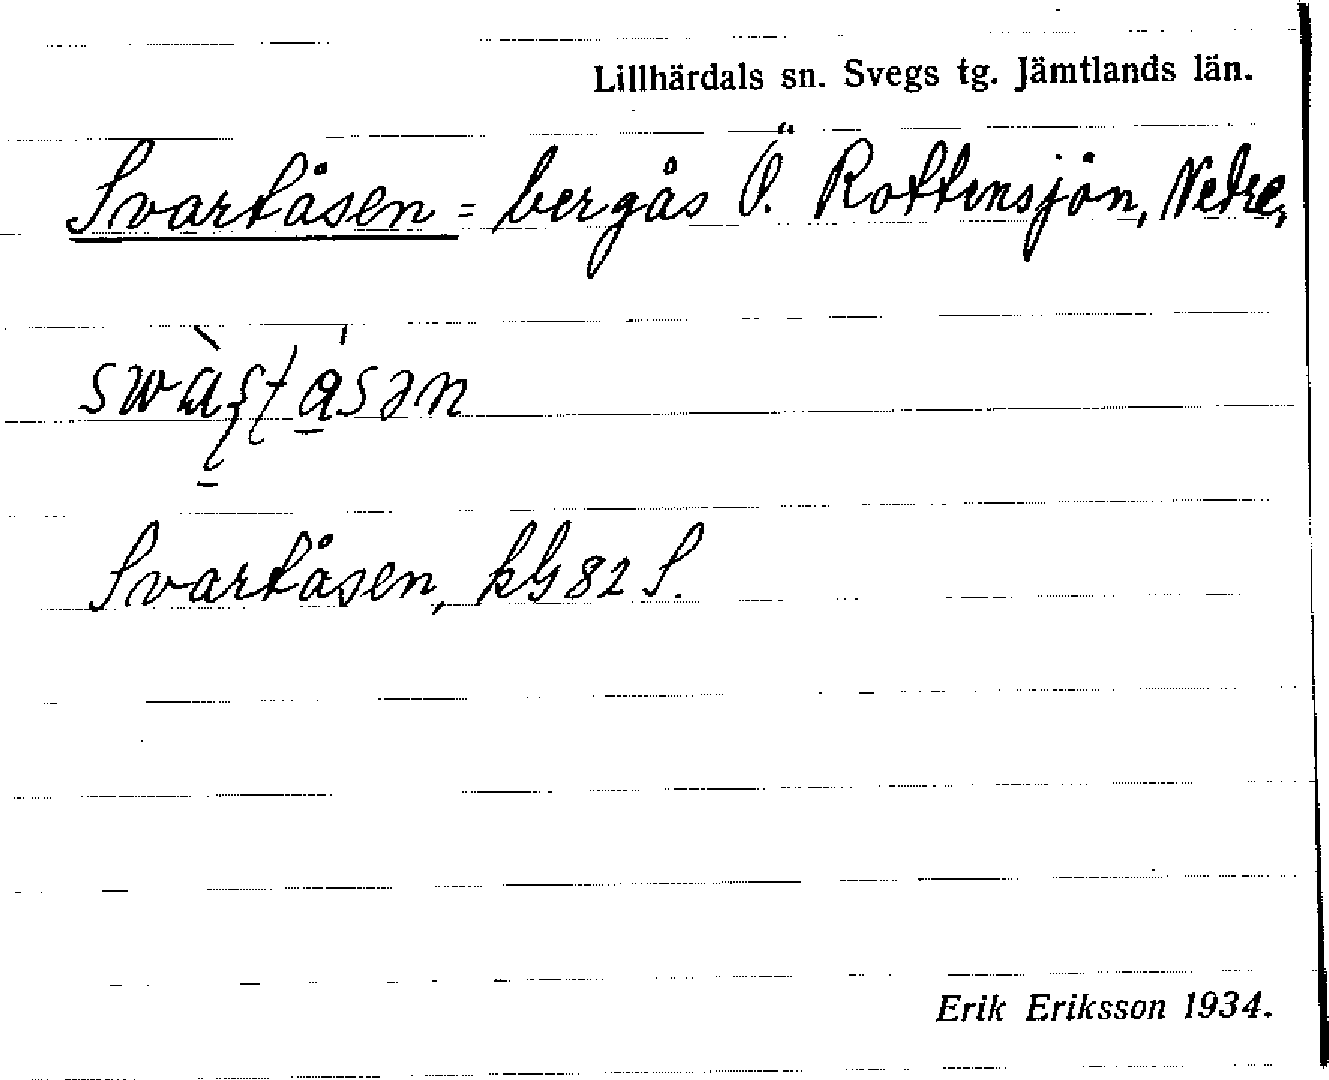 Lillhärdals sn. Svegs tg. Jämtlands län.
Svartåsen = bergås Ö. Rottensjön, Nedre,
Svartåsen, kG 82 S.
Erik Eriksson 1934.